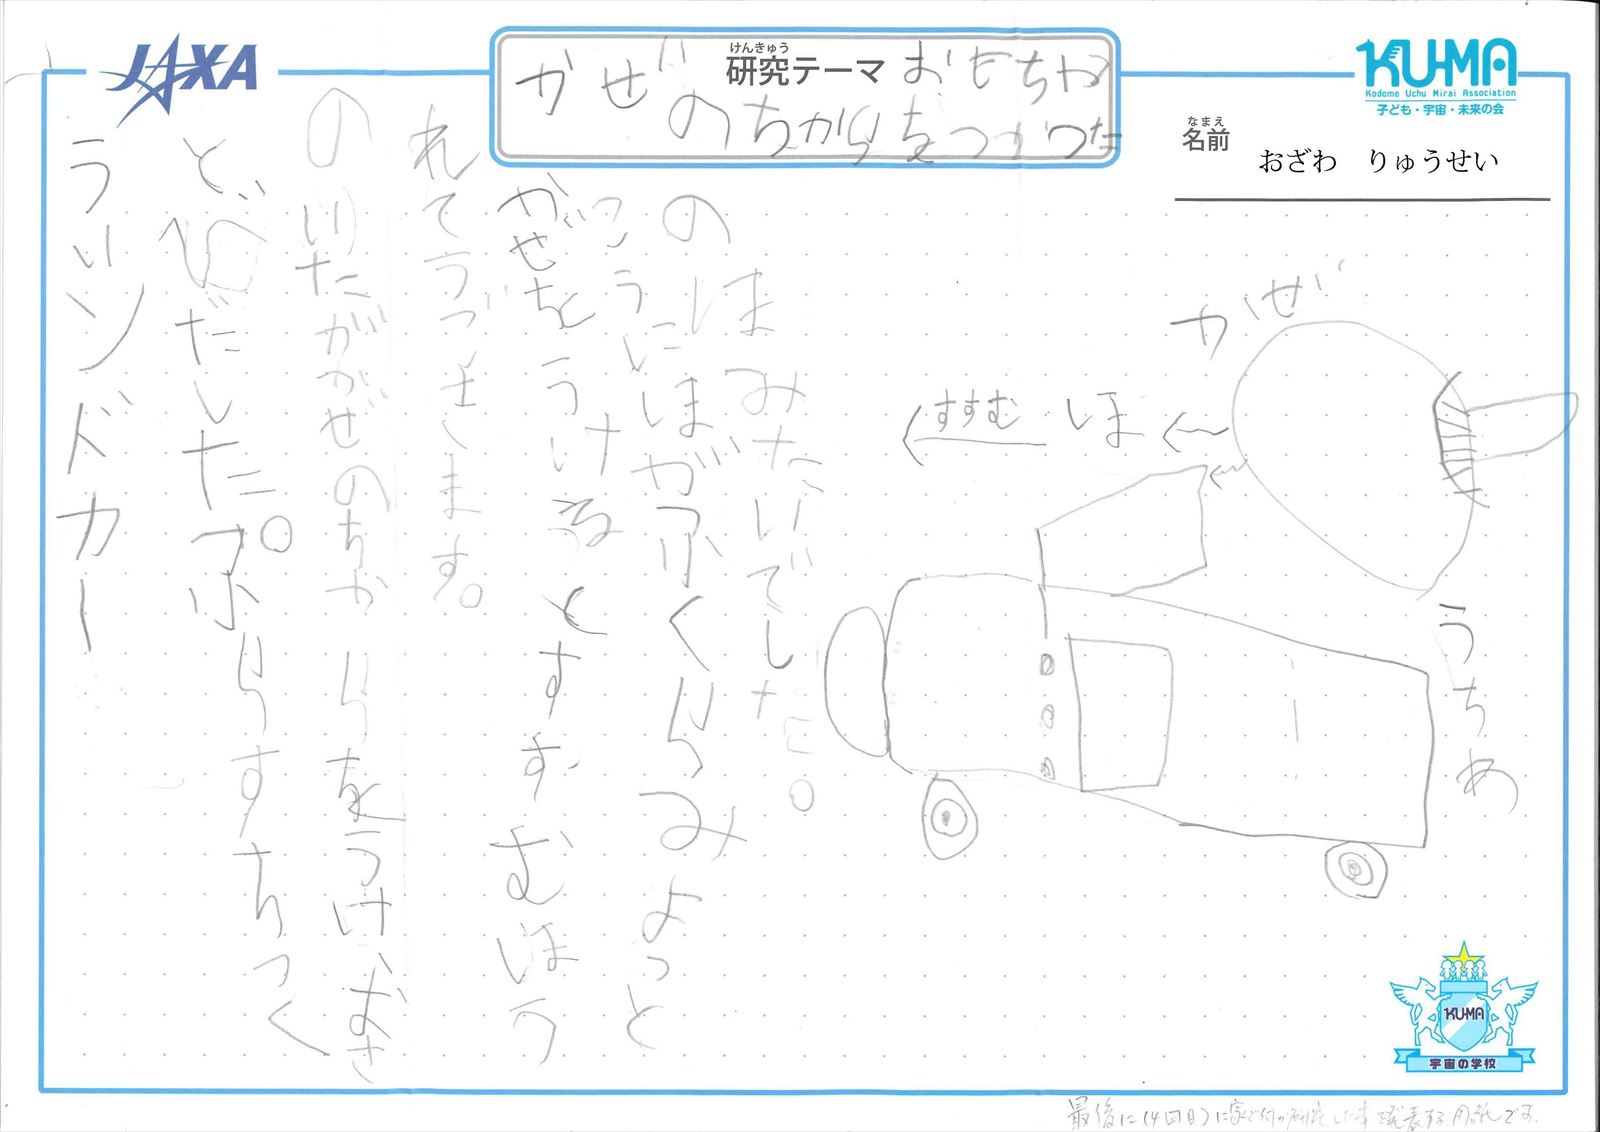 JAXA
けんきゅう
研究テーマ
かぜ
のちからをつかった
おもちゃ
KU-MA
Kodomo Uchu Mirai Association
子ども・宇宙・未来の会
なまえ
名前
おざわ　りゅうせい
ランドカー
とびだしたプらすちっく
のいたがかぜのちからをうけ、おさ
れてうごきます。
かぜをうけるとすすむほう
こうにほがふくらみよっと
のほみたいでした。
かぜ
すすむ
ほ
うちわ
KU-MA
宇宙の学校
最後に(4回目)に家で何か研究した事を発表する用紙です。